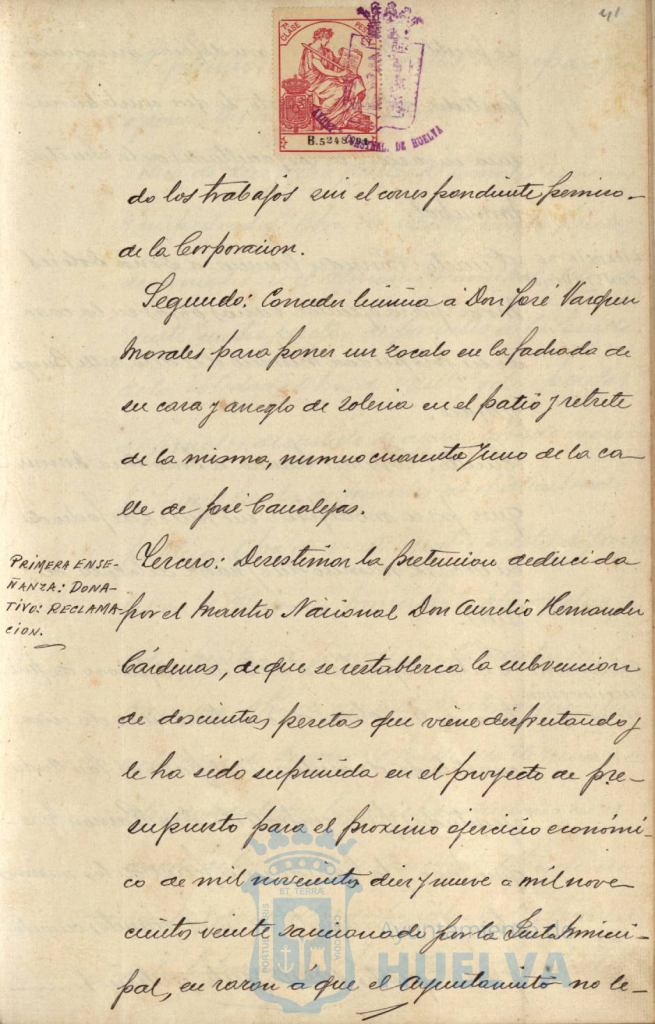 41
7ª CLASE
B.5248
CONSTNAL. DE HUELVA
do los trabajos sin el correspondiente permiso
de la Corporacion.
Segundo: Conceder licencia á Don José Vazquez
Morales para poner un zocalo en la fachada de
su casa y arreglo de soleria en el patio y retrete
de la misma, numero cuarenta y uno de la ca-
lle de José Canalejas.
PRIMERA ENSE-
ÑANZA: DONA-
TIVO: RECLAMA-
CION.
Tercero: Desestimar la pretension deducida
por el Maestro Nacional Don Aurelio Hernandez
Cárdenas, de que se restablezca la subvencion
de doscientas pesetas que viene disfrutando y
le ha sido suprimida en el proyecto de pre-
supuesto para el proximo ejercicio económi-
co de mil novecientos diez y nueve a mil nove
cientos veinte sancionado por la Junta Munici-
pal, en razon á que el Ayuntamiento no le-
ET TERRAE
Ayuntamiento de
HUELVA